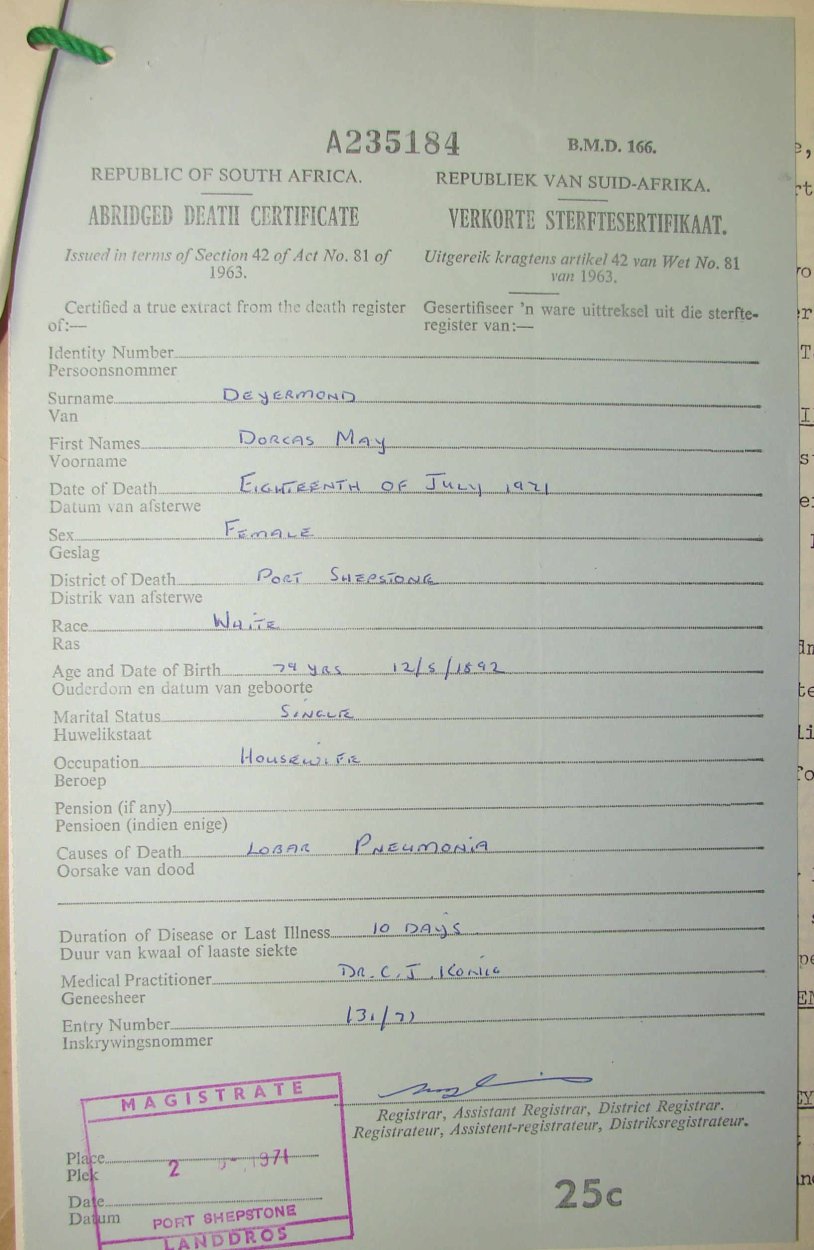 A235184
B.M.D. 166.
REPUBLIC OF SOUTH AFRICA.
REPUBLIEK VAN SUID-AFRIKA.
ABRIDGED DEATH CERTIFICATE
VERKORTE STERFTESERTIFIKAAT.
Issued in terms of Section 42 of Act No. 81 of
1963.
Uitgereik kragtens artikel 42 van Wet No. 81
van 1963.
Certified a true extract from the death register
of:—
Gesertifiseer 'n ware uittreksel uit die sterfte-
register van:—
Identity Number
Persoonsnommer
Surname DEYERMOND
Van
First Names DORCAS MAY
Voorname
Date of Death EIGHTEENTH OF JULY 1971
Datum van afsterwe
Sex FEMALE
Geslag
District of Death PORT SHEPSTONE
Distrik van afsterwe
Race WHITE
Ras
Age and Date of Birth 79 YRS 12/5/1892
Ouderdom en datum van geboorte
Marital Status SINGLE
Huwelikstaat
Occupation HOUSEWIFE
Beroep
Pension (if any)
Pensioen (indien enige)
Causes of Death LOBAR PNEUMONIA
Oorsake van dood
Duration of Disease or Last Illness 10 DAYS
Duur van kwaal of laaste siekte
Medical Practitioner DR. C. J. KONIG
Geneesheer
Entry Number 131/71
Inskrywingsnommer
MAGISTRATE
Registrar, Assistant Registrar, District Registrar.
Registrateur, Assistent-registrateur, Distriksregistrateur.
Place
Plek
2 1971
Date
Datum
PORT SHEPSTONE
LANDDROS
25c